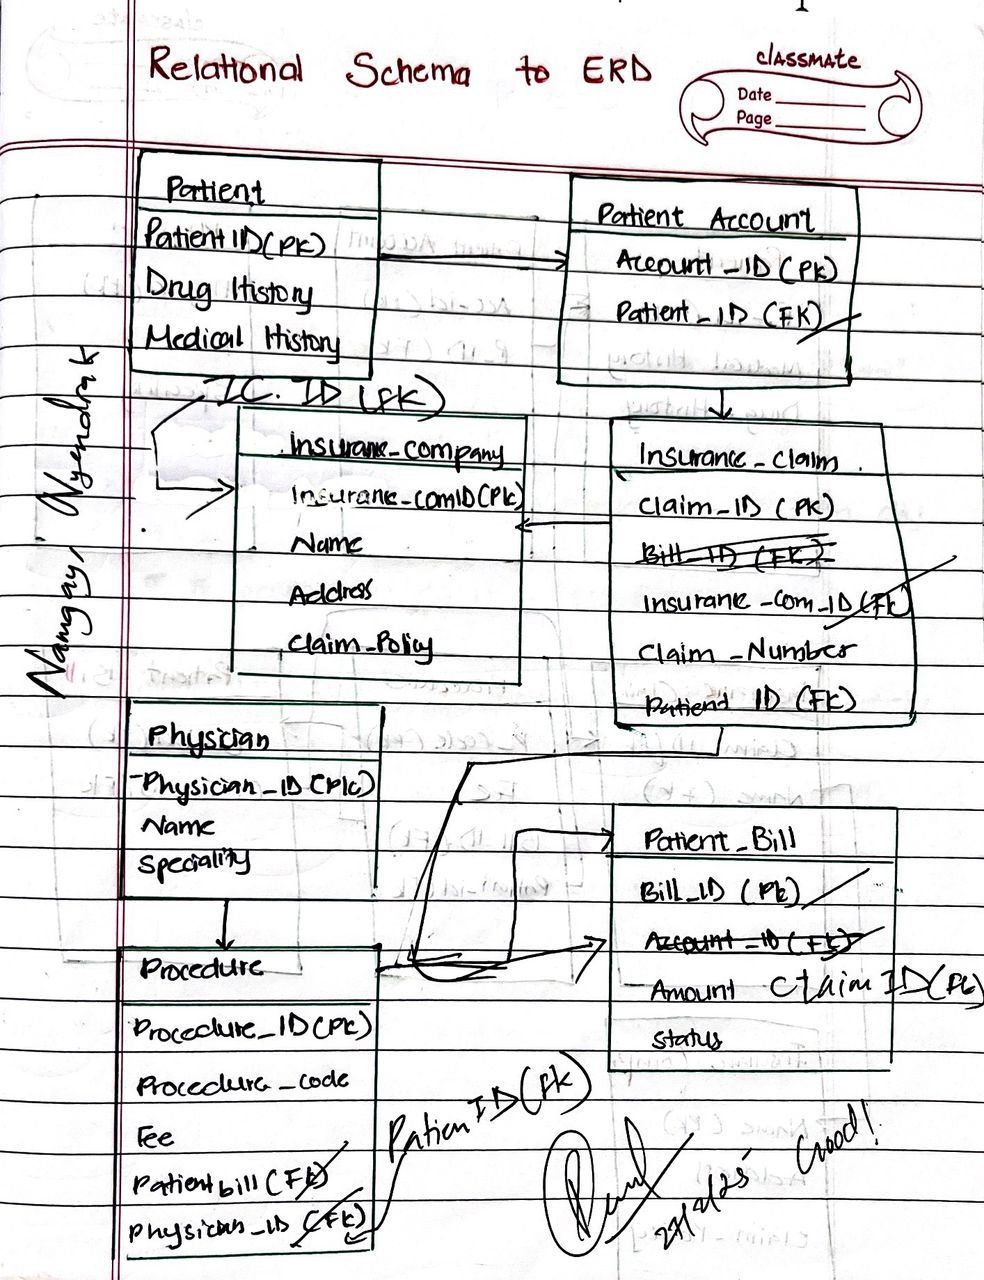 Relational Schema to ERD
classmate
Date
Page
Patient
Patient ID (PK)
Drug History
Medical History
Patient Account
Account_ID (PK)
Patient_ID (FK)
IC. ID (FK)
Insurane_company
Insurane_comID(Pk)
Name
Address
Claim_Policy
Insurane_claim
Claim_ID (PK)
Bill_ID (FK)
Insurane_com_ID (FK)
Claim_Number
Patient ID (FK)
Namgay Nyendrak
Physician
Physician_ID (Pk)
Name
Speciality
Patient_Bill
Bill_ID (Pk)
Account_ID (FK)
Amount Claim ID (FK)
Status
Procedure
Procedure_ID (PK)
Procedure_code
Fee
Patient bill (FK)
Physician_ID (FK)
Patien ID (FK)
Good!